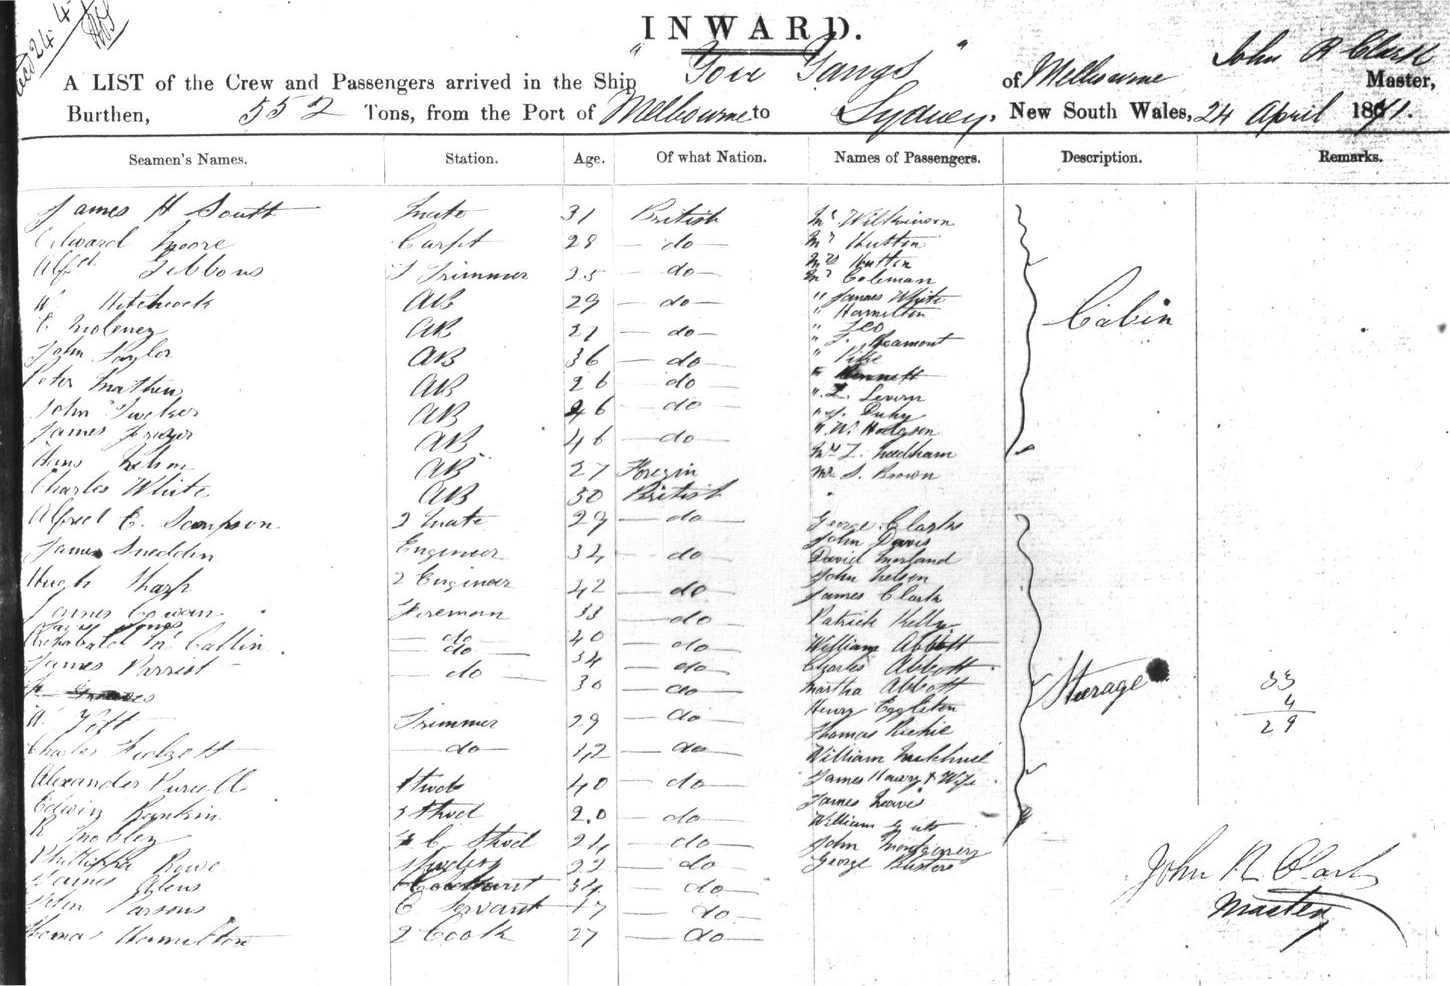 24
INWARD.
A LIST of the Crew and Passengers arrived in the Ship "You Yangs" of Melbourne John R Clark Master,
Burthen, 552 Tons, from the Port of Melbourne to Sydney, New South Wales, 24 April 1871.
Seamen's Names. Station. Age. Of what Nation. Names of Passengers. Description. Remarks.
James H South Mate 31 British Mr Wilkinson
Edward Moore Carpt 28 do Mr Hutton
Mrs Hutton
Alfd Gibbons Trimmer 25 do Mr Coleman
W Hitchcock AB 29 do " James White
" Hamilton Cabin
E Moloney AB 21 do " Leo
John Taylor AB 36 do " Beamont
" Pike
Peter Mathew AB 26 do " Bennett
" L. Levien
John Tucker AB 46 do " Duhy
James Frazer AB 46 do " W. Hodgson
Mrs L. Needham
Hans Nelson AB 27 Foregin Mr S. Brown
Charles White AB 30 British
Alfred E. Sampson 2 Mate 29 do George Clarke
John Davis
James Sneddin Engineer 34 do David Morland
John Nelson
Hugh Sharp 2 Engineer 42 do James Clark
James Cowan Fireman 33 do Patrick Kelly
James Jones do 40 do William Abbott
Archabald Mc Callin do 34 do Charles Abbott
James Parrest do 30 do Martha Abbott Steerage 33
Henry Eggleton 4
Toft Trimmer 29 do Thomas Richie 29
Charles Fidgett do 42 do William
Alexander Purcell Stwd 40 do James Harry & Wife
James Neaves
Edwin Rankin 2 Stwd 20 do William
R Mobley C Stwd 24 do John Montgomery
Phillippa Rowe 22 do George
James Glens 34 do John R Clark
John Parsons C Servant 17 do Master
Thomas Hamilton 2 Cook 27 do